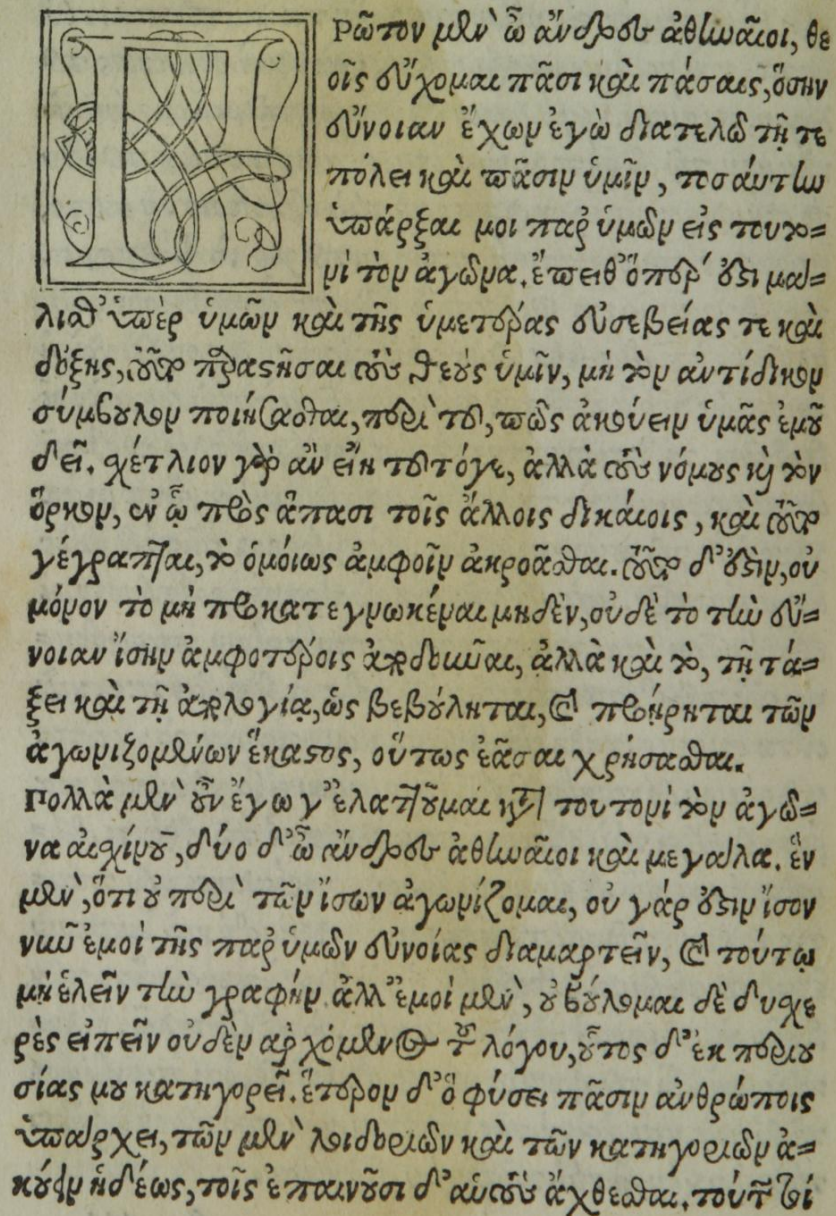 Πρῶτον μὲν ὦ ἄνδρες ἀθηναῖοι, θε
οῖς εὔχομαι πᾶσι καὶ πάσαις, ὅσην
εὔνοιαν ἔχων ἐγὼ διατελῶ τῇ τε
πόλει καὶ πᾶσιν ὑμῖν, τοσαύτην
ὑπάρξαι μοι παρ' ὑμῶν εἰς τουτο=
νὶ τὸν ἀγῶνα. ἔπειθ' ὅπερ ἐστὶ μάλ=
λισθ' ὑπὲρ ὑμῶν καὶ τῆς ὑμετέρας εὐσεβείας τε καὶ
δόξης, τοῦτο παραστῆσαι τοὺς θεοὺς ὑμῖν, μὴ τὸν ἀντίδικον
σύμβουλον ποιήσασθαι, περὶ τοῦ, πῶς ἀκούειν ὑμᾶς ἐμοῦ
δεῖ. σχέτλιον γὰρ ἂν εἴη τοῦτόγε, ἀλλὰ τοὺς νόμους καὶ τὸν
ὅρκον, ἐν ᾧ πρὸς ἅπασι τοῖς ἄλλοις δικαίοις, καὶ τοῦτο
γέγραπται, τὸ ὁμοίως ἀμφοῖν ἀκροᾶσθαι. τοῦτο δ' ἐστὶν, οὐ
μόνον τὸ μὴ προκατεγνωκέναι μηδὲν, οὐδὲ τὸ τὴν εὔ=
νοιαν ἴσην ἀμφοτέροις ἀποδοῦναι, ἀλλὰ καὶ τὸ, τῇ τά=
ξει καὶ τῇ ἀπολογίᾳ, ὡς βεβούληται, καὶ προῄρηται τῶν
ἀγωνιζομένων ἕκαστος, οὕτως ἐᾶσαι χρήσασθαι.
Πολλὰ μὲν οὖν ἔγωγ' ἐλαττοῦμαι κατὰ τουτονὶ τὸν ἀγῶ=
να αἰσχίνου, δύο δ' ὦ ἄνδρες ἀθηναῖοι καὶ μεγάλα. ἓν
μὲν, ὅτι οὐ περὶ τῶν ἴσων ἀγωνίζομαι, οὐ γάρ ἐστιν ἴσον
νῦν ἐμοὶ τῆς παρ' ὑμῶν εὐνοίας διαμαρτεῖν, καὶ τούτῳ
μὴ ἑλεῖν τὴν γραφήν. ἀλλ' ἐμοὶ μὲν, οὐ βούλομαι δὲ δυσχε
ρὲς εἰπεῖν οὐδὲν ἀρχόμενος τοῦ λόγου, οὗτος δ' ἐκ περιου
σίας μου κατηγορεῖ. ἕτερον δ' ὃ φύσει πᾶσιν ἀνθρώποις
ὑπάρχει, τῶν μὲν λοιδοριῶν καὶ τῶν κατηγοριῶν ἀ=
κούειν ἡδέως, τοῖς ἐπαινοῦσι δ' αὑτοὺς ἄχθεσθαι. τούτων τοί